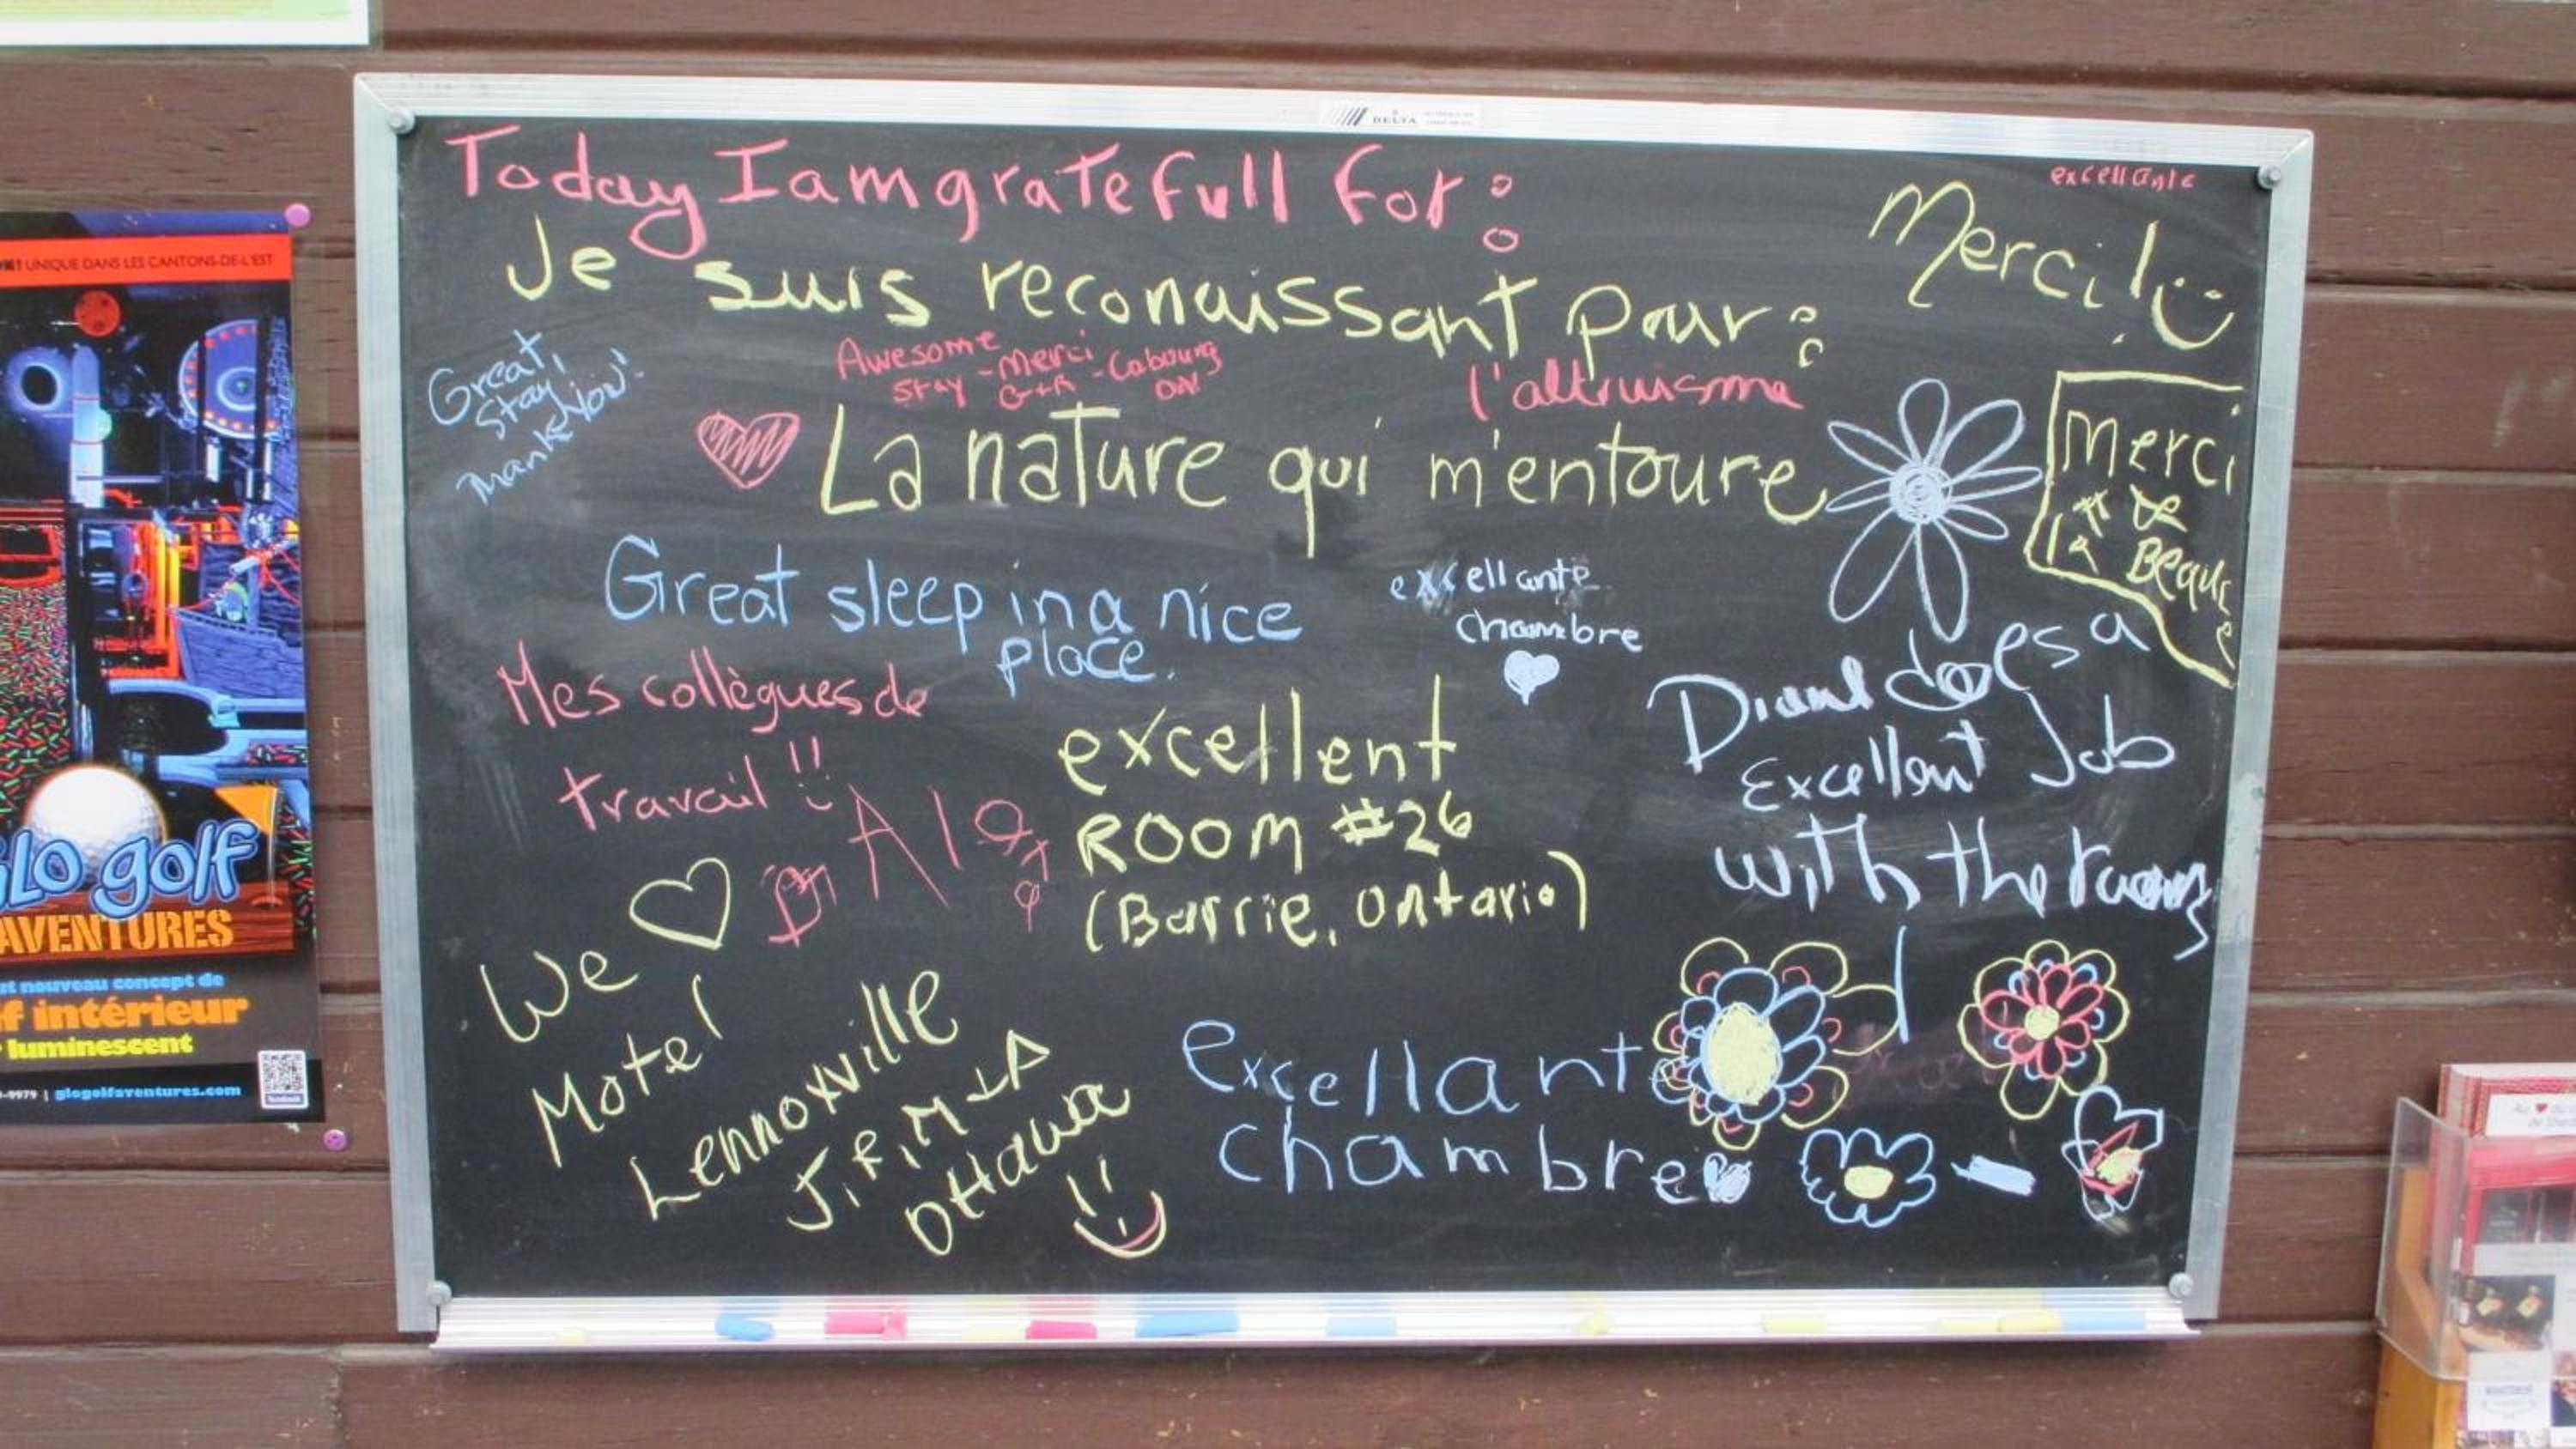 Today I am gratefull for:
Je suis reconaissant pour:
excellante
Merci!
Great
Stay
Thank You!
Awesome
Stay - Merci - Cobourg
G+R ON!
l'altruisme
La nature qui m'entoure
Merci
Great sleep in a nice
place.
excellante
chambre
Mes collègues de
travail!!
excellent
ROOM #26
(Barrie, Ontario)
does a
Excellent Job
with the rooms
We
Motel
Lennoxville
Ottawa
excellante
chambre
DELTA
UNIQUE DANS LES CANTONS-DE-L'EST
GLO golf
AVENTURES
nouveau concept de
f intérieur
luminescent
-9979 | glogolfaventures.com